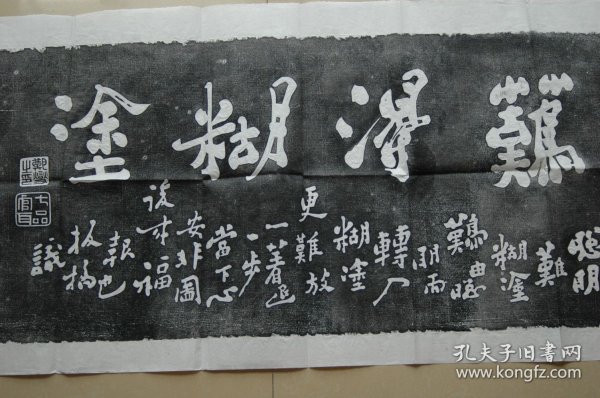 難得糊塗
聰明
難
糊塗
難由聰
明而
轉入
糊塗
更難放
一着退
一步
當下心
安非圖
後來福
報也
板橋
識
鄭燮之印
七品官耳
孔夫子旧書网
www.kongfz.com